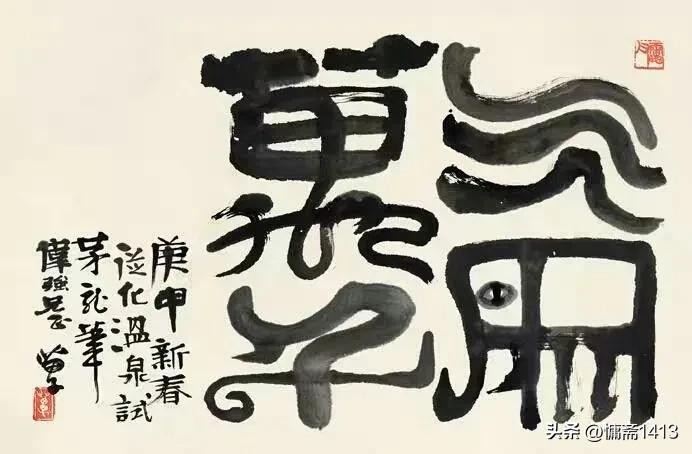 气象
萬千
庚申新春
從化溫泉試
茅龙筆
偉強兄正 苗子
头条 @慵斋1413